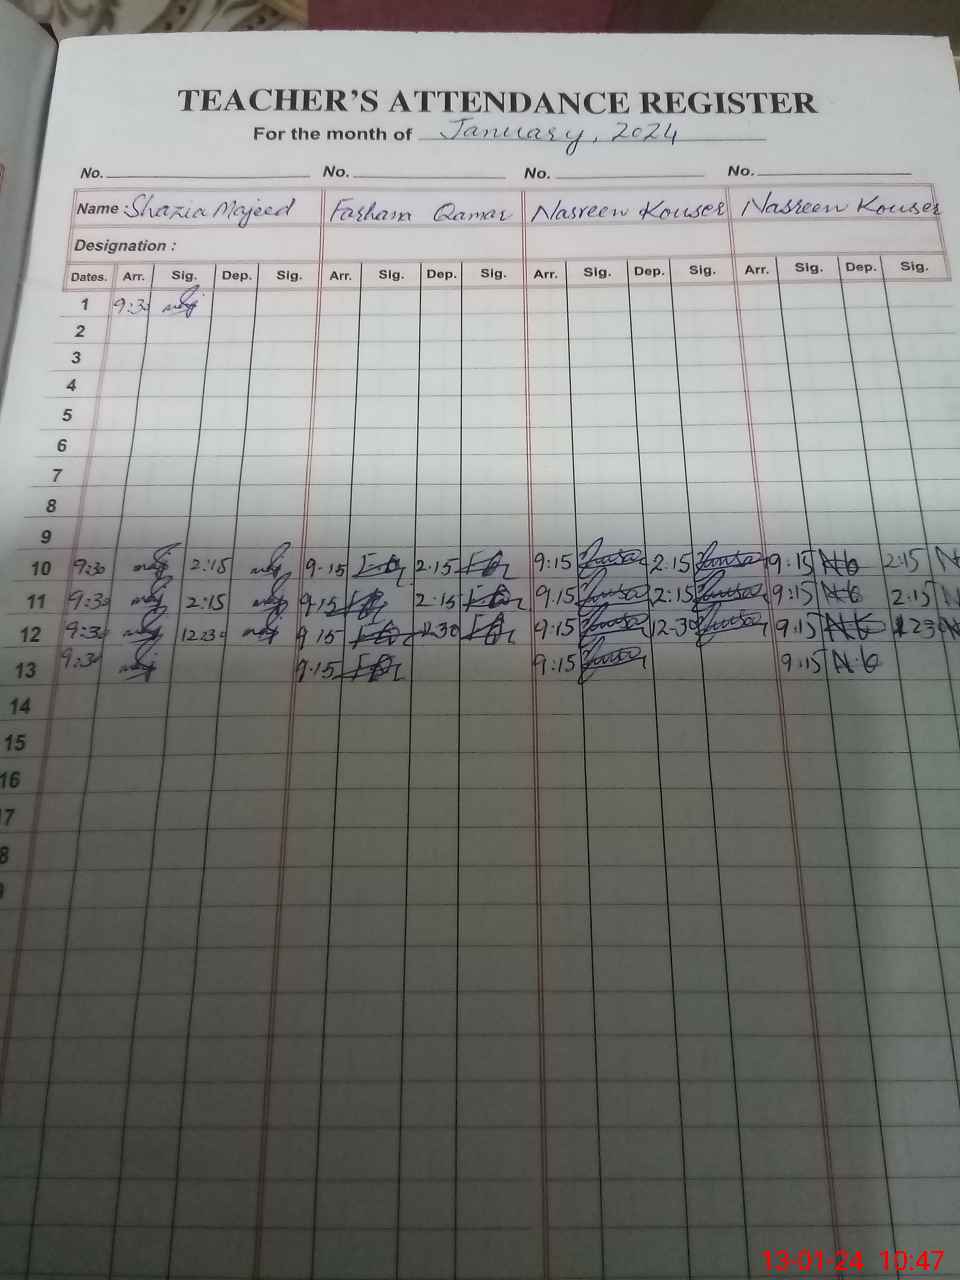 TEACHER'S ATTENDANCE REGISTER
For the month of January, 2024
No. No. No. No.
Name : Shazia Majeed Farhana Qamar Nasreen Kouser Nasreen Kouser
Designation :
Dates. Arr. Sig. Dep. Sig. Arr. Sig. Dep. Sig. Arr. Sig. Dep. Sig. Arr. Sig. Dep. Sig.
1 9:30
2
3
4
5
6
7
8
9
10 9:30 2:15 9.15 2.15 9:15 2:15 9:15 2:15
11 9:30 2:15 9.15 2.15 9:15 2:15 9:15 2:15
12 9:30 12:30 9.15 12.30 9:15 12.30 9:15 1230
13 9:30 9.15 9:15 9:15
14
15
16
7
8
13-01-24 10:47